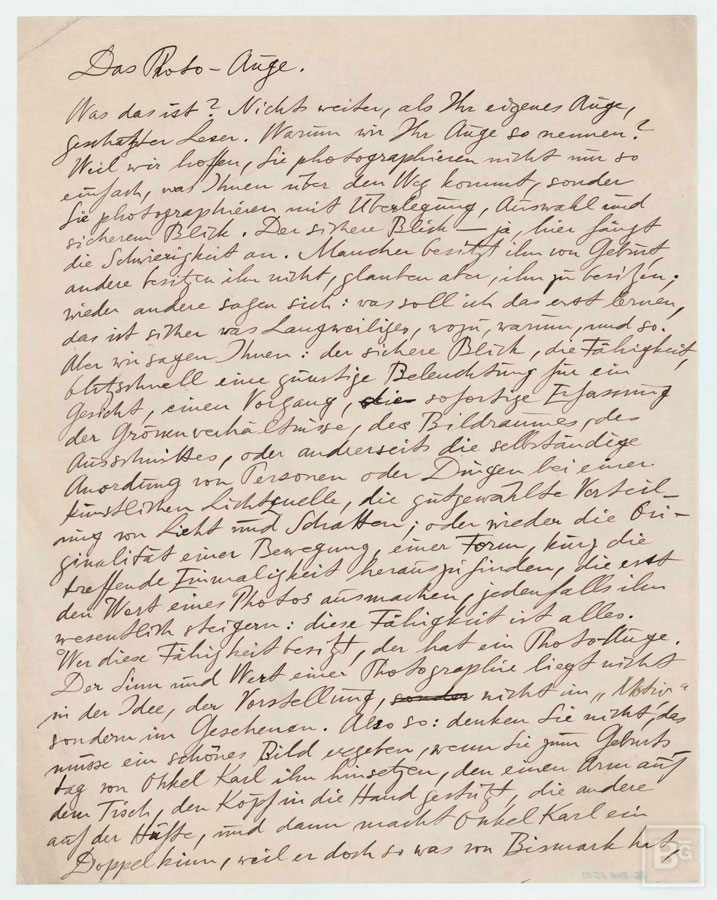 Das Photo-Auge.
Was das ist? Nichts weiter, als Ihr eigenes Auge,
geschätzter Leser. Warum wir Ihr Auge so nennen?
Weil wir hoffen, Sie photographieren nicht nur so
einfach, was Ihnen über den Weg kommt, sonder
Sie photographieren mit Überlegung, Auswahl und
sicherem Blick. Der sichere Blick – ja, hier fängt
die Schwierigkeit an. Mancher besitzt ihn von Geburt,
andere besitzen ihn nicht, glauben aber, ihn zu besitzen;
wieder andere sagen sich: was soll ich das erst lernen,
das ist sicher was Langweiliges, wozu, warum, und so.
Aber wir sagen Ihnen: der sichere Blick, die Fähigkeit,
blitzschnell eine günstige Beleuchtung für ein
Gesicht, einen Vorgang, die sofortige Erfassung
der Grössenverhältnisse, des Bildraumes, des
Ausschnittes, oder anderseits die selbständige
Anordung von Personen oder Dingen bei einer
künstlichen Lichtquelle, die gutgewählte Verteil-
ung von Licht und Schatten; oder wieder die Ori-
ginalität einer Bewegung, einer Form, kurz die
treffende Einmaligkeit herauszufinden, die erst
den Wert eines Photos ausmachen, jedenfalls ihn
wesentlich steigern: diese Fähigkeit ist alles.
Wer diese Fähigkeit besitzt, der hat ein Photo-Auge.
Der Sinn und Wert einer Photographie liegt nicht
in der Idee, der Vorstellung, sonder nicht im „Motiv“
sondern im Gesehenen. Also so: denken Sie nicht, das
müsse ein schönes Bild ergeben, wenn Sie zum Geburts
tag von Onkel Karl ihn hinsetzen, den einen Arm auf
dem Tisch, den Kopf in die Hand gestützt, die andere
auf der Hüfte, und dann macht Onkel Karl ein
Doppelkinn, weil er doch so was von Bismark hat,
BG